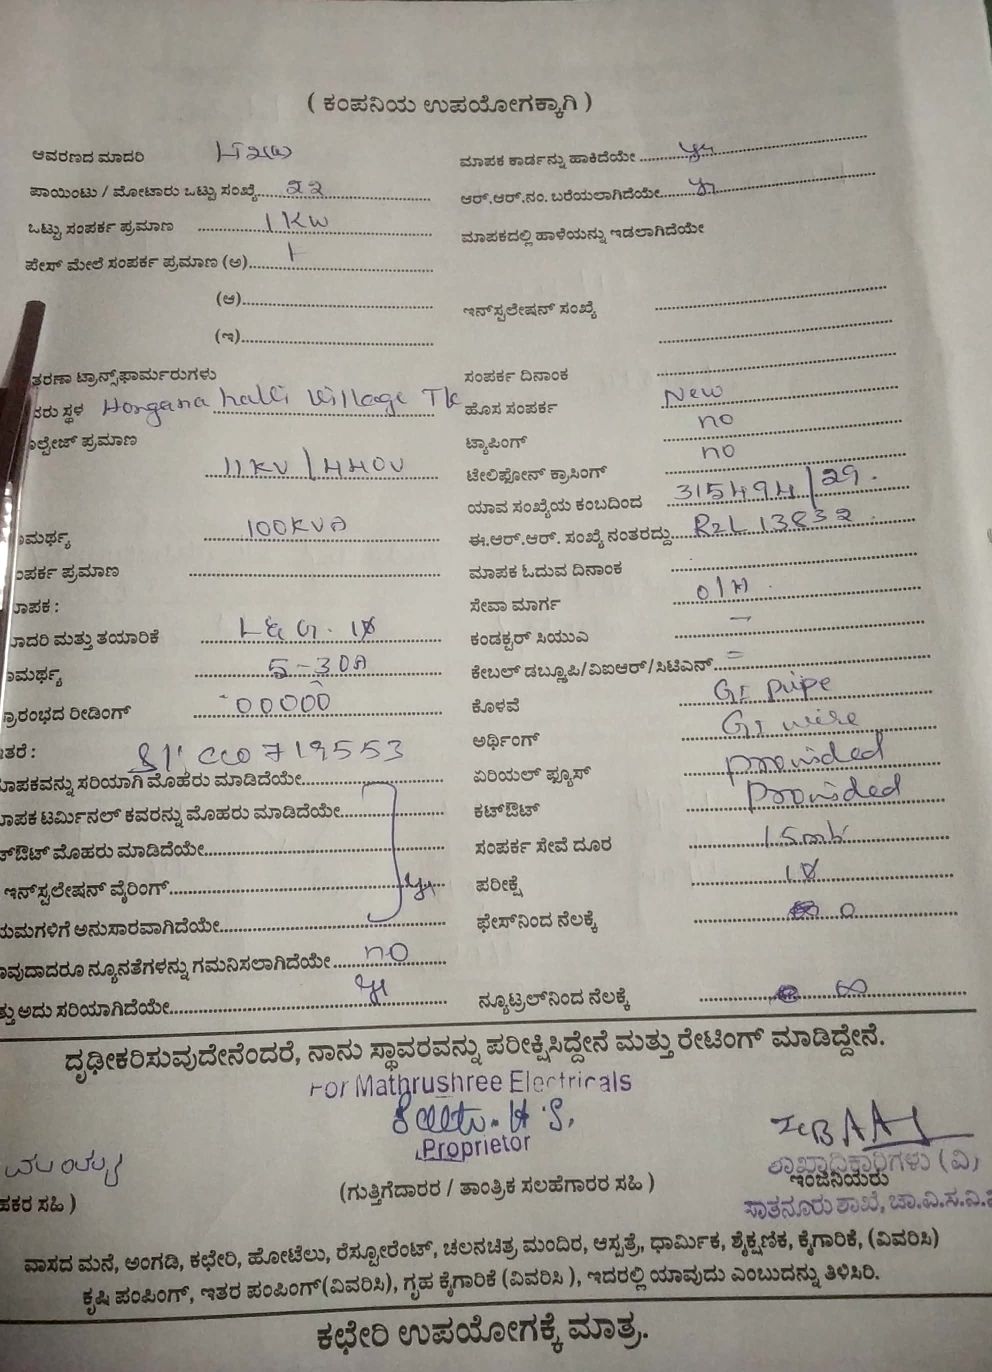 ( ಕಂಪನಿಯ ಉಪಯೋಗಕ್ಕಾಗಿ )
ಆವರಣದ ಮಾದರಿ
ಮಾಪಕ ಕಾರ್ಡನ್ನು ಹಾಕಿದೆಯೇ
ಪಾಯಿಂಟು / ಮೋಟಾರು ಒಟ್ಟು ಸಂಖ್ಯೆ 22
ಆರ್.ಆರ್.ನಂ. ಬರೆಯಲಾಗಿದೆಯೇ
ಒಟ್ಟು ಸಂಪರ್ಕ ಪ್ರಮಾಣ 1 KW
ಮಾಪಕದಲ್ಲಿ ಹಾಳೆಯನ್ನು ಇಡಲಾಗಿದೆಯೇ
ಪೇಸ್ ಮೇಲೆ ಸಂಪರ್ಕ ಪ್ರಮಾಣ (ಅ)
(ಆ)
ಇನ್‌ಸ್ಟಲೇಷನ್ ಸಂಖ್ಯೆ
(ಇ)
ತರಣಾ ಟ್ರಾನ್ಸ್‌ಫಾರ್ಮರುಗಳು
ಸಂಪರ್ಕ ದಿನಾಂಕ
ಸ್ಥಳ halli Village
ಹೊಸ ಸಂಪರ್ಕ New
ಪ್ರಮಾಣ
11KV / 440V
ಟ್ಯಾಪಿಂಗ್ no
ಟೇಲಿಫೋನ್ ಕ್ರಾಸಿಂಗ್ no
ಯಾವ ಸಂಖ್ಯೆಯ ಕಂಬದಿಂದ 315494/29.
ಮರ್ಥ್ಯ 100KVA
ಈ.ಆರ್.ಆರ್. ಸಂಖ್ಯೆ ನಂತರದ್ದು R2L 13832
ಂಪರ್ಕ ಪ್ರಮಾಣ
ಮಾಪಕ ಓದುವ ದಿನಾಂಕ
ಾಪಕ :
ಸೇವಾ ಮಾರ್ಗ O/H
ಾದರಿ ಮತ್ತು ತಯಾರಿಕೆ L&G. 1Ø
ಕಂಡಕ್ಟರ್ ಸಿಯುಎ –
ಮರ್ಥ್ಯ 5-30A
ಕೇಬಲ್ ಡಬ್ಲ್ಯೂಪಿ/ವಿಐಆರ್/ಸಿಟಿಎನ್ =
್ರಾರಂಭದ ರೀಡಿಂಗ್ 00000
ಕೊಳವೆ GI pipe
ತರೆ : 719553
ಅರ್ಥಿಂಗ್ GI wire
ಾಪಕವನ್ನು ಸರಿಯಾಗಿ ಮೊಹರು ಮಾಡಿದೆಯೇ
ಏರಿಯಲ್ ಫ್ಯೂಸ್ provided
ಾಪಕ ಟರ್ಮಿನಲ್ ಕವರನ್ನು ಮೊಹರು ಮಾಡಿದೆಯೇ
ಕಟ್‌ಔಟ್ provided
ಟ್‌ಔಟ್ ಮೊಹರು ಮಾಡಿದೆಯೇ
ಸಂಪರ್ಕ ಸೇವೆ ದೂರ
ಇನ್‌ಸ್ಟಲೇಷನ್ ವೈರಿಂಗ್
ಪರೀಕ್ಷೆ 1Ø
ಯಮಗಳಿಗೆ ಅನುಸಾರವಾಗಿದೆಯೇ
ಫೇಸ್‌ನಿಂದ ನೆಲಕ್ಕೆ
ಾವುದಾದರೂ ನ್ಯೂನತೆಗಳನ್ನು ಗಮನಿಸಲಾಗಿದೆಯೇ no
ತ್ತು ಅದು ಸರಿಯಾಗಿದೆಯೇ
ನ್ಯೂಟ್ರಲ್‌ನಿಂದ ನೆಲಕ್ಕೆ
ದೃಢೀಕರಿಸುವುದೇನೆಂದರೆ, ನಾನು ಸ್ಥಾವರವನ್ನು ಪರೀಕ್ಷಿಸಿದ್ದೇನೆ ಮತ್ತು ರೇಟಿಂಗ್ ಮಾಡಿದ್ದೇನೆ.
For Mathrushree Electricals
Proprietor
ಶಾಖಾಧಿಕಾರಿಗಳು (ವಿ)
ಹಕರ ಸಹಿ )
(ಗುತ್ತಿಗೆದಾರರ / ತಾಂತ್ರಿಕ ಸಲಹೆಗಾರರ ಸಹಿ )
ಇಂಜಿನಿಯರು
ಸಾತನೂರು ಶಾಖೆ, ಚಾ.ವಿ.ಸ.ನಿ.
ವಾಸದ ಮನೆ, ಅಂಗಡಿ, ಕಛೇರಿ, ಹೋಟೆಲು, ರೆಸ್ಟೋರೆಂಟ್, ಚಲನಚಿತ್ರ ಮಂದಿರ, ಆಸ್ಪತ್ರೆ, ಧಾರ್ಮಿಕ, ಶೈಕ್ಷಣಿಕ, ಕೈಗಾರಿಕೆ, (ವಿವರಿಸಿ)
ಕೃಷಿ ಪಂಪಿಂಗ್, ಇತರ ಪಂಪಿಂಗ್(ವಿವರಿಸಿ), ಗೃಹ ಕೈಗಾರಿಕೆ (ವಿವರಿಸಿ ), ಇದರಲ್ಲಿ ಯಾವುದು ಎಂಬುದನ್ನು ತಿಳಿಸಿರಿ.
ಕಛೇರಿ ಉಪಯೋಗಕ್ಕೆ ಮಾತ್ರ.